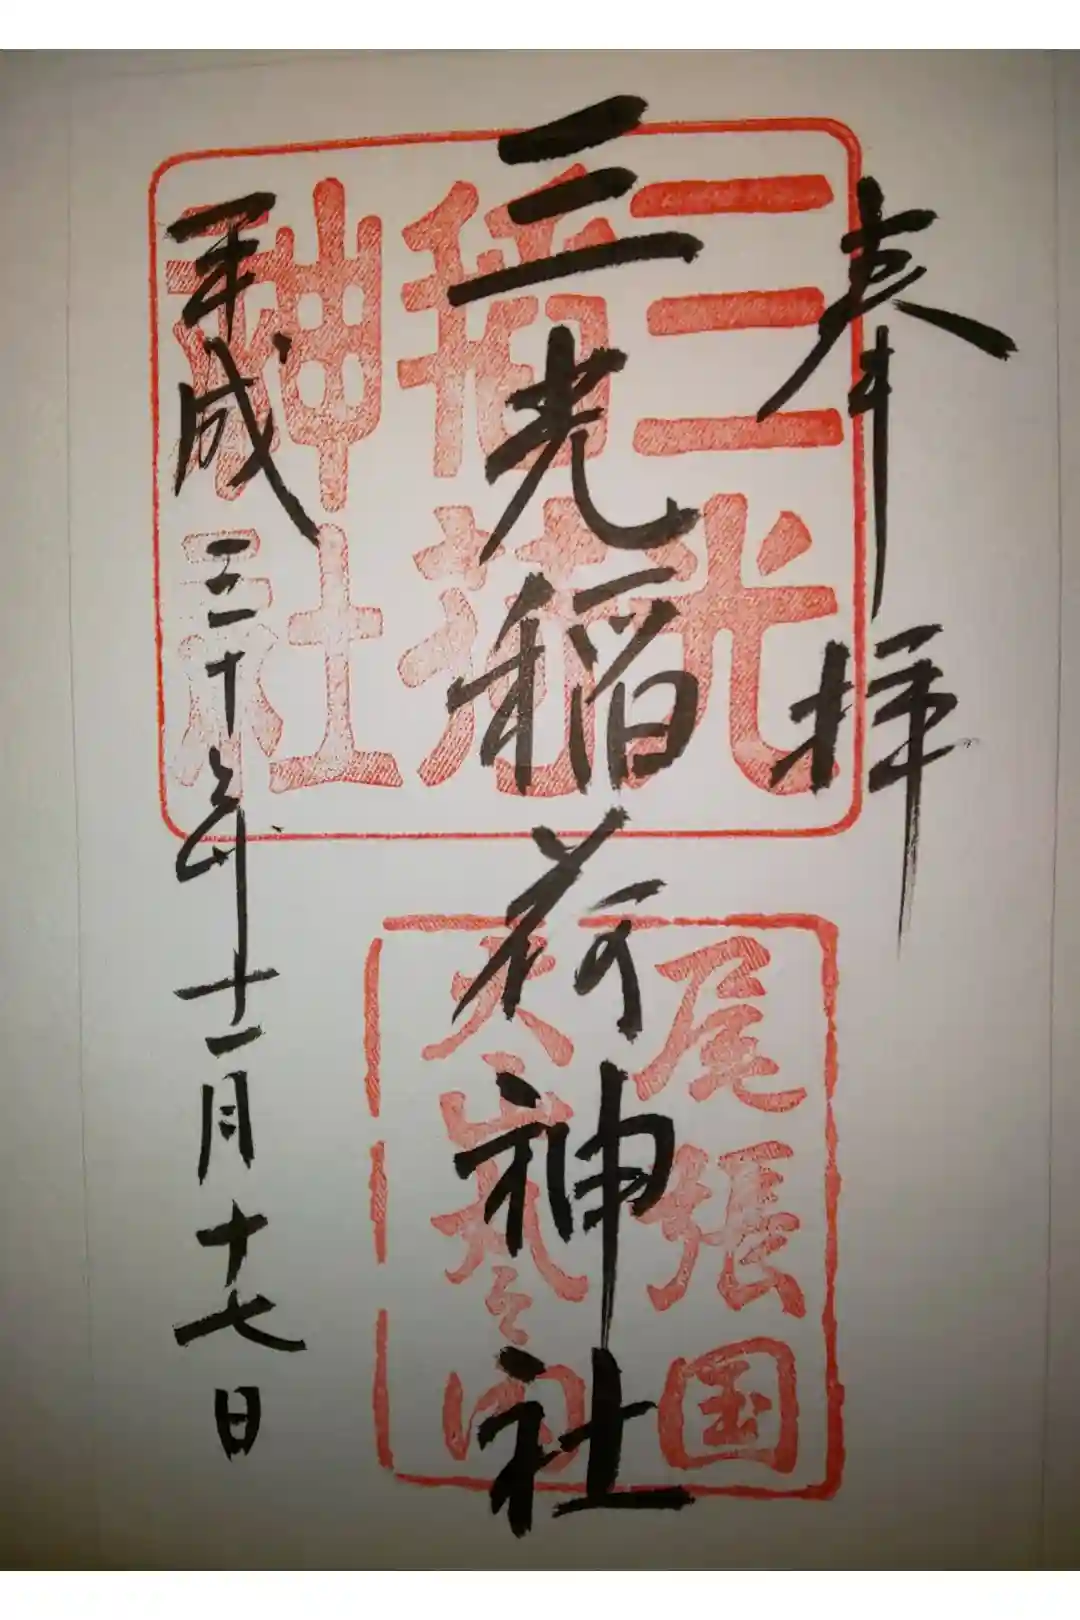 奉拝
三光稲荷神社
平成三十年十一月十七日
三光
稲荷
神社
尾張国
犬山丸之内